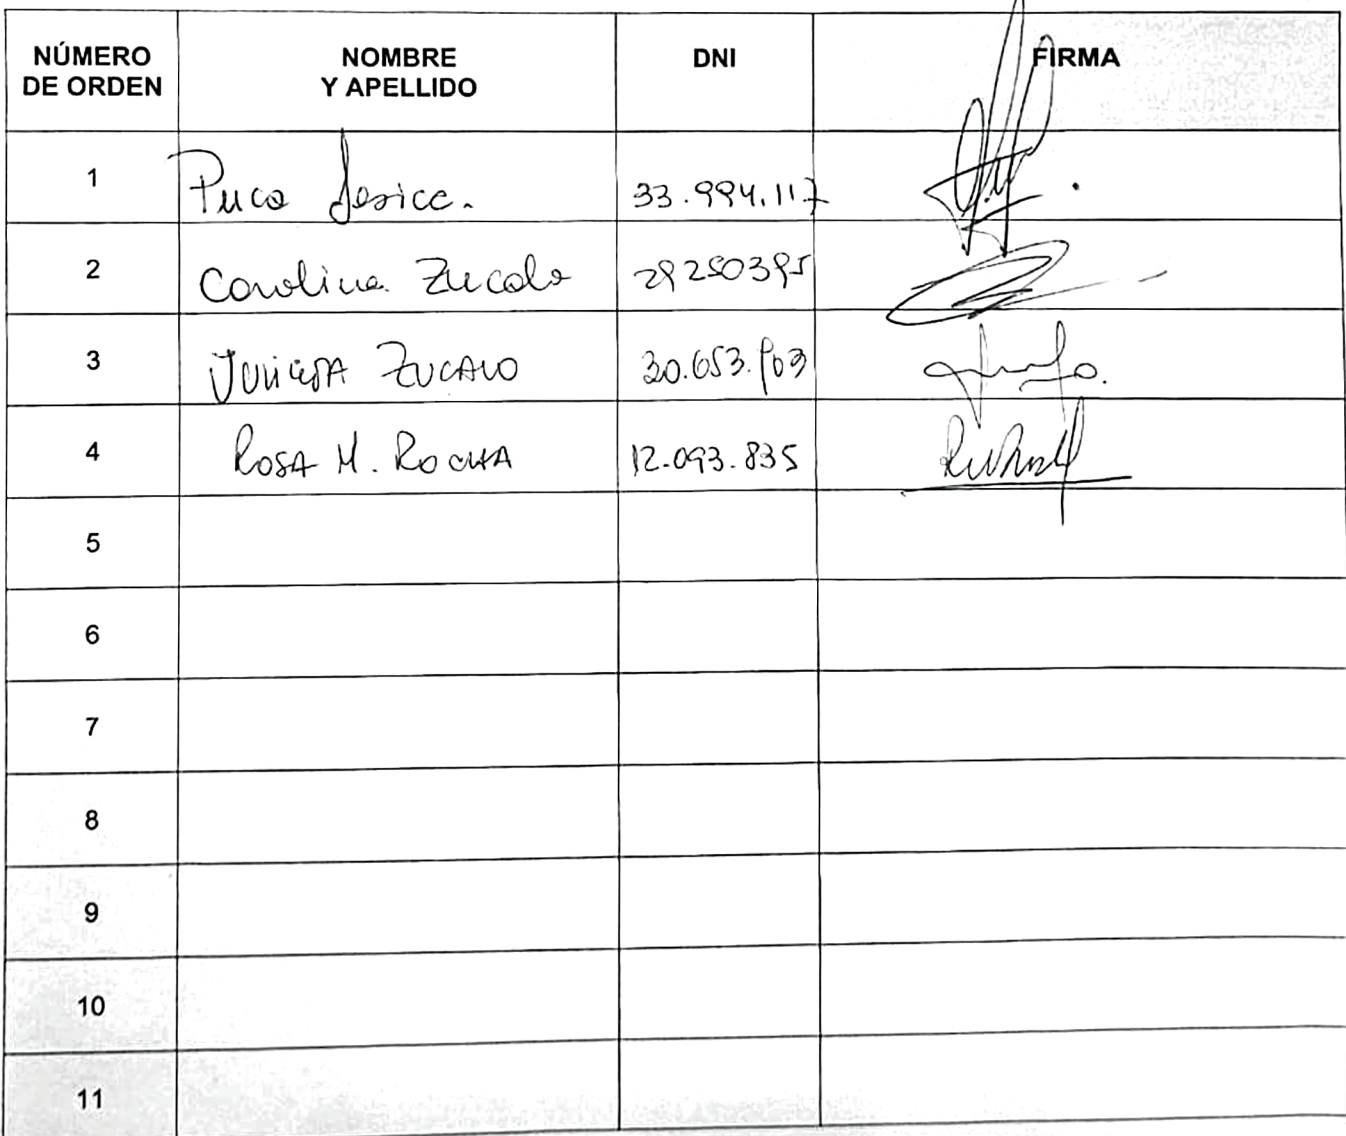 NÚMERO DE ORDEN NOMBRE Y APELLIDO DNI FIRMA
1 Puca Jesica. 33.994.117
2 Carolina Zucalo 29250395
3 JULIETA ZUCALO 30.653.903
4 ROSA M. ROCHA 12.093.835
5
6
7
8
9
10
11